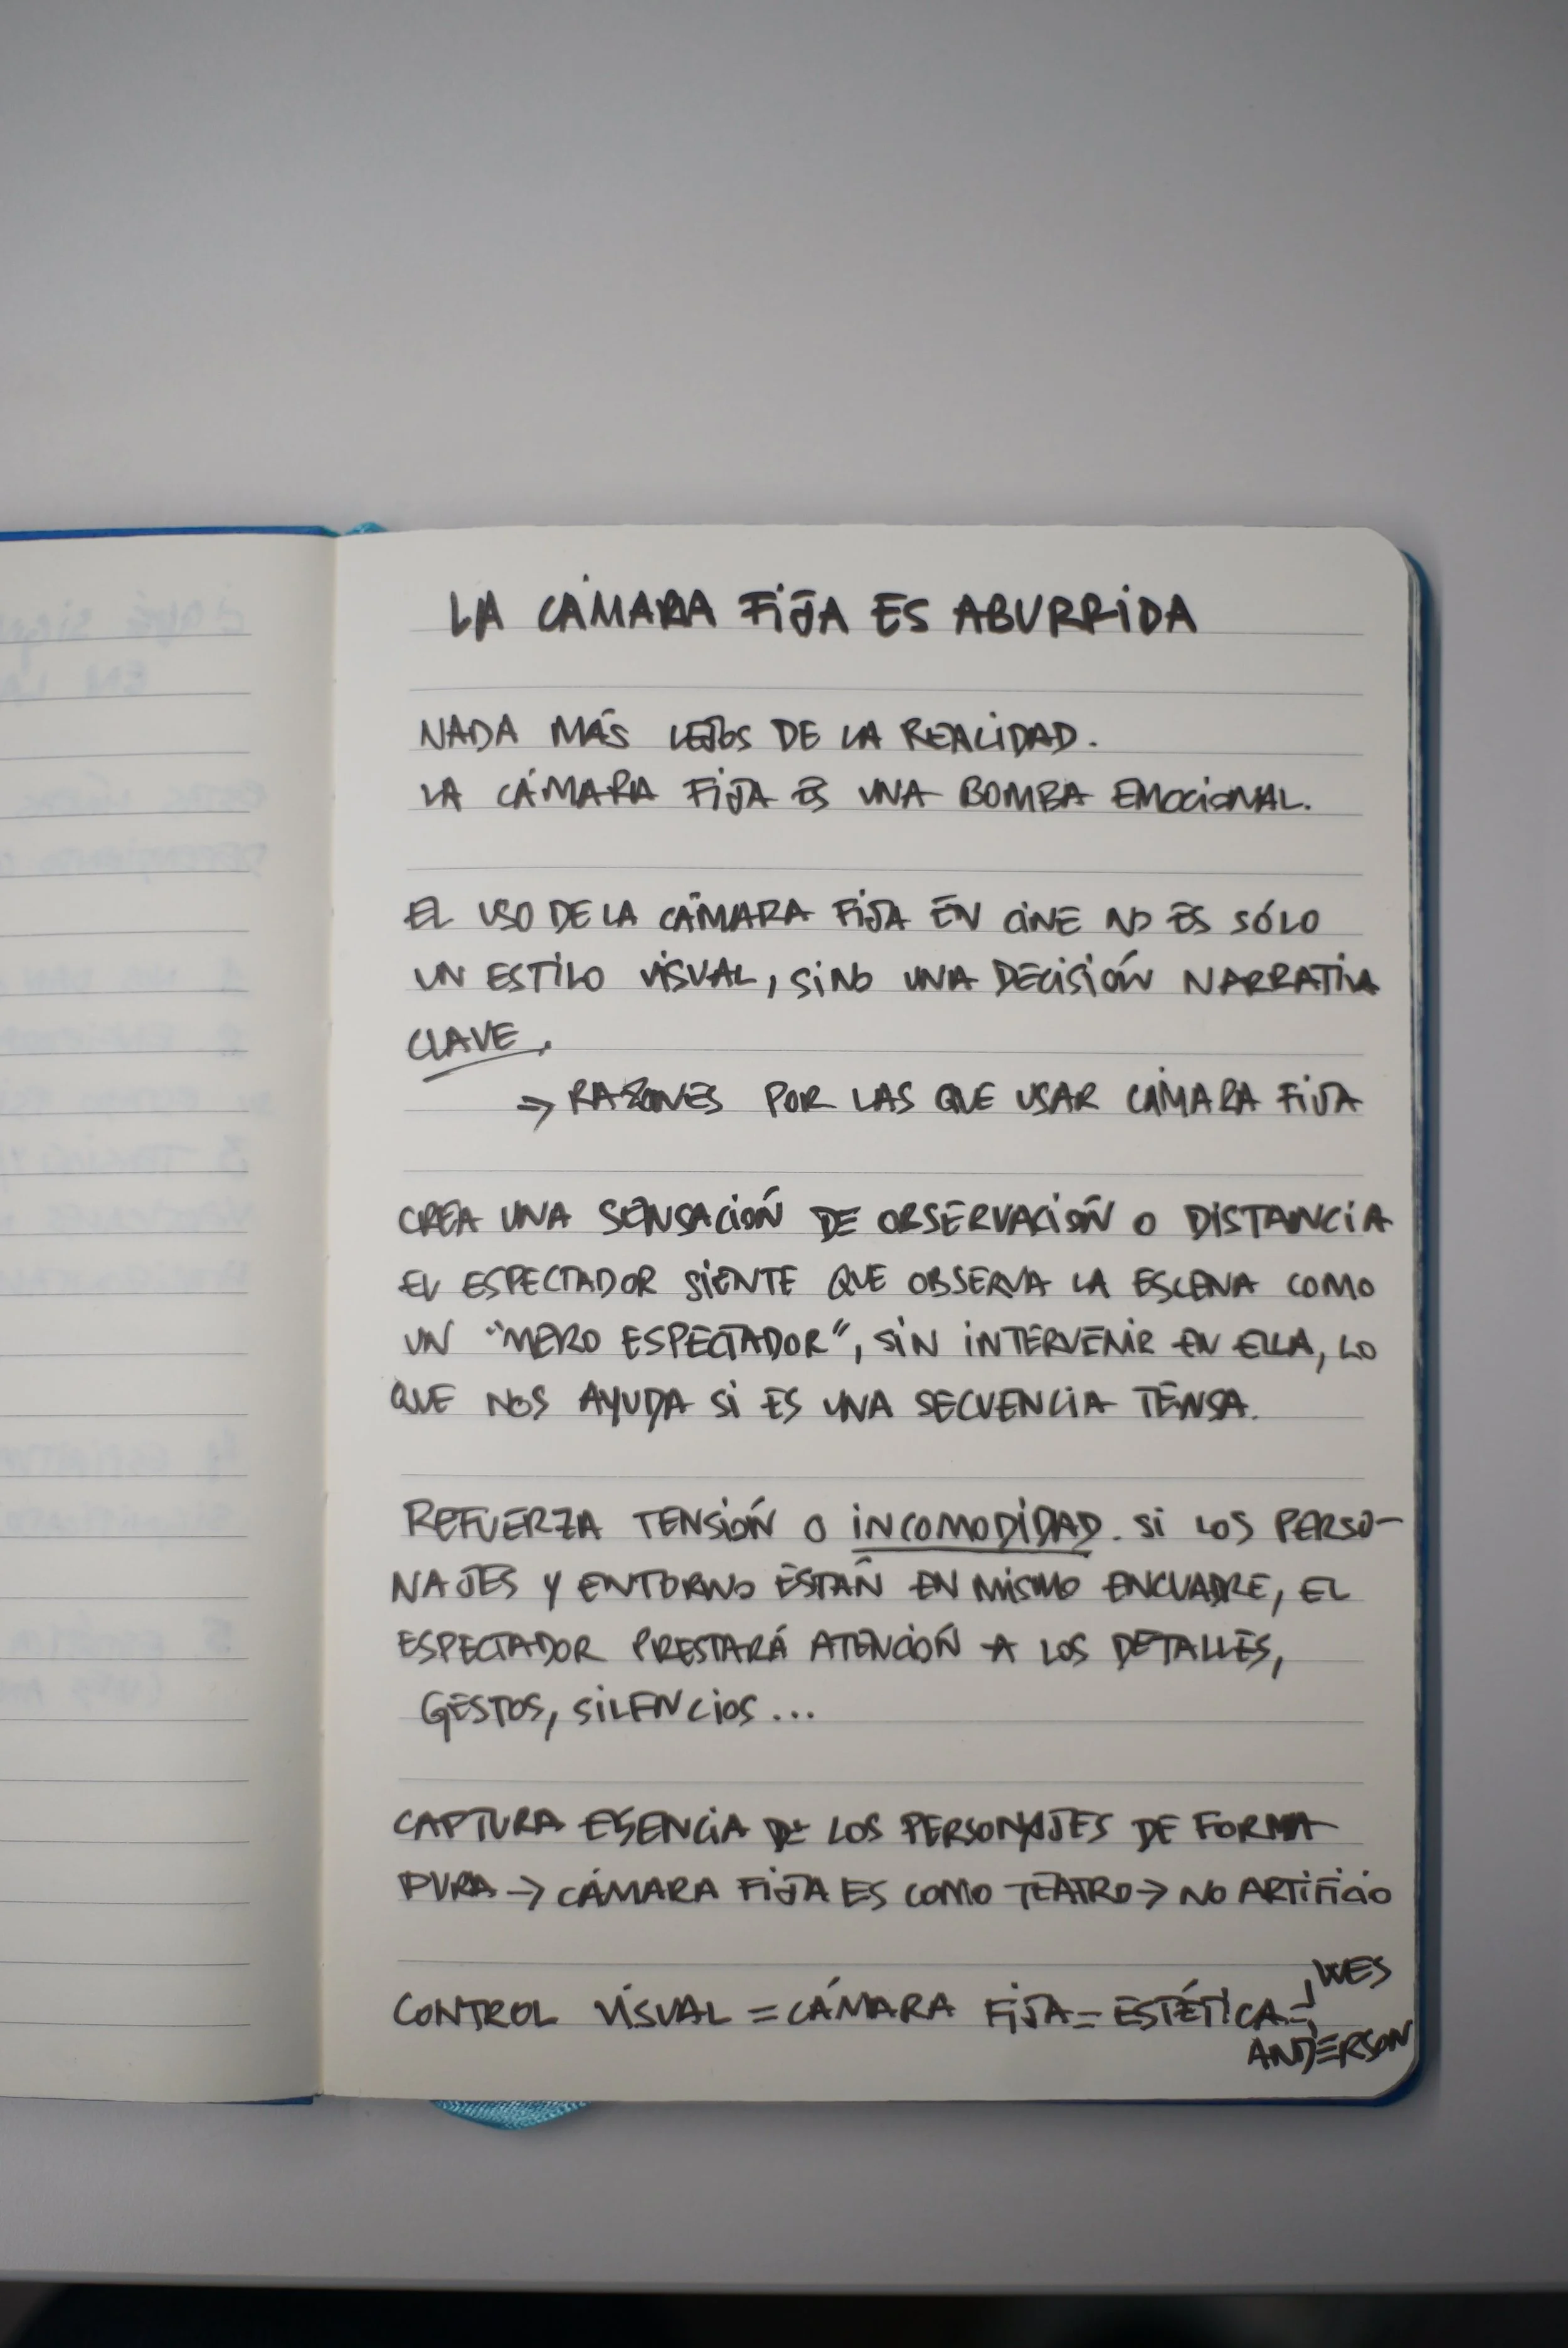 LA CÁMARA FIJA ES ABURRIDA
NADA MÁS LEJOS DE LA REALIDAD.
LA CÁMARA FIJA ES UNA BOMBA EMOCIONAL.
EL USO DE LA CÁMARA FIJA EN CINE NO ES SÓLO
UN ESTILO VISUAL, SINO UNA DECISIÓN NARRATIVA
CLAVE.
⇒ RAZONES POR LAS QUE USAR CÁMARA FIJA
CREA UNA SENSACIÓN DE OBSERVACIÓN O DISTANCIA
EL ESPECTADOR SIENTE QUE OBSERVA LA ESCENA COMO
UN "MERO ESPECTADOR", SIN INTERVENIR EN ELLA, LO
QUE NOS AYUDA SI ES UNA SECUENCIA TENSA.
REFUERZA TENSIÓN O INCOMODIDAD. SI LOS PERSO-
NAJES Y ENTORNO ESTÁN EN MISMO ENCUADRE, EL
ESPECTADOR PRESTARÁ ATENCIÓN A LOS DETALLES,
GESTOS, SILENCIOS...
CAPTURA ESENCIA DE LOS PERSONAJES DE FORMA
PURA → CÁMARA FIJA ES COMO TEATRO → NO ARTIFICIO
CONTROL VISUAL = CÁMARA FIJA = ESTÉTICA = WES
ANDERSON